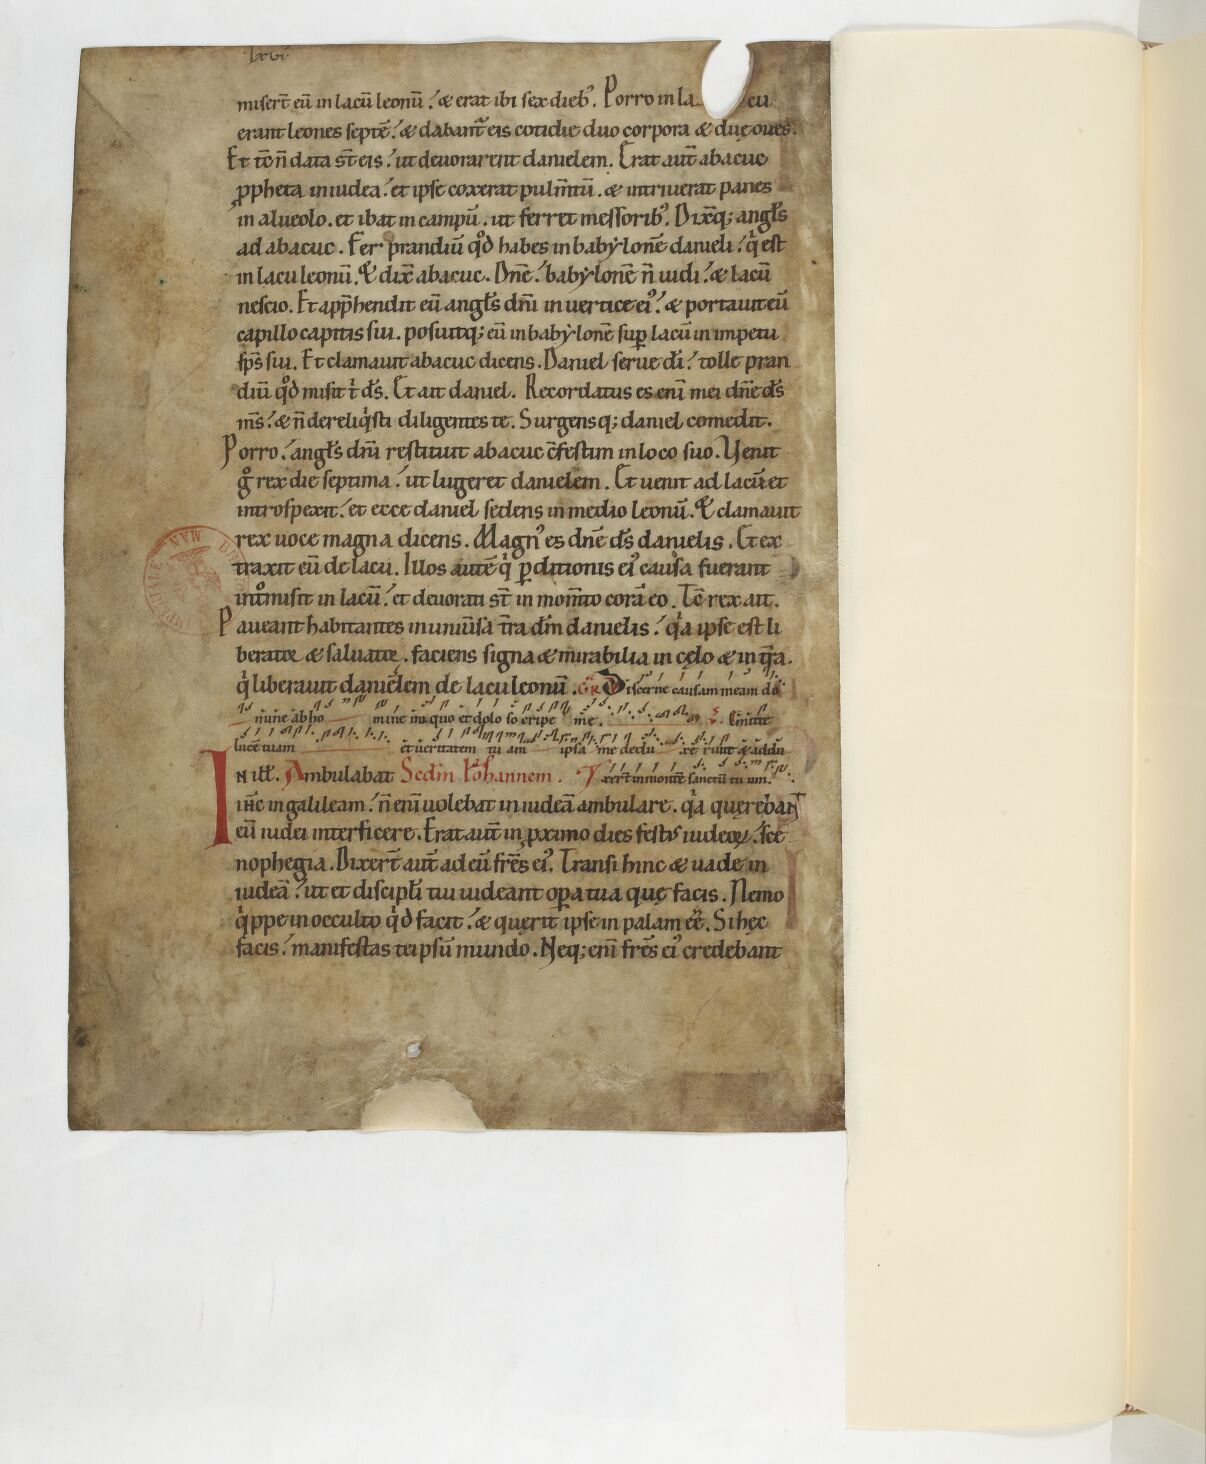 lxvi
miser̅t eū in lacū leonū ./ & erat ibi sex dieb᾽. Porro in la cu
erant leones septē ./ & dabant̅ eis cotidie duo corpora & duę oues.
Et tc̅ n̅ data s̅t eis ./ ut deuorarent danielem. Erat aut̅ abacuc
ꝓpheta in iudea ./ et ipse coxerat pulm̅tū. & intriuerat panes
in alueolo. et ibat in campū. ut ferret messorib᾽. Dixitq; angl̅s
ad abacuc. Fer prandiū qd̊ habes in babylonē danieli ./ q̇ est
in lacu leonū. & dix̅ abacuc. Dn̅e ./ babylonē n̅ uidi ./ & lacū
nescio. Et app̅hendit eū angl̅s dn̅i in uertice ei᾽ ./ & portauit eū
capillo capitis sui. posuitq; eū in babylonē sup̱ lacū in impetu
sp̅s sui. Et clamauit abacuc dicens. Daniel serue di̅ ./ tolle pran
diū qd̊ misit ṫ ds̅. Et ait daniel. Recordatus es eni̅ mei dn̅e ds̅
ms̅ ./ & n̅ dereliq̇sti diligentes te. Surgensq; daniel comedit.
Porro ./ angl̅s dn̅i restituit abacuc c̅festim in loco suo. Uenit
g̊ rex die septima ./ ut lugeret danielem. Et uenit ad lacū et
introspexit ./ et ecce daniel sedens in medio leonū. & clamauit
rex uoce magna dicens. Magn᾽ es dn̅e ds̅ danielis. Et ex
traxit eū de lacu. Illos autē q̇ ꝑditionis ei᾽ causa fuerant
int̊misit in lacū ./ et deuorati s̅t in mom̅to corā eo. Tc̅ rex ait.
Paueant habitantes in uniu̅sa t̅ra dm̅ danielis ./ qa ipse est li
berator & saluator. faciens signa & mirabilia in cęlo & in t̅ra.
q̇ liberauit danielem de lacu leonū. GR Discerne causam meam do
mine ab ho mine iniquo et doloso eripe me. Emitte
lucē tuam et ueritatem tuam ipsa me dedu xe runt & addu
In ill̅. Ambulabat Scdm̅ Iohannem. xer̅t in montē sanctū tuum.
ih̅c in galileam ./ n̅ eni̅ uolebat in iudeā ambulare. qa quęrebant
eū iudei interficere. Erat aut̅ in ꝓximo dies festus iudeoꝝ ./ sce
nophegia. Dixer̅t aut̅ ad eū fr̅es ei᾽. Transi hinc & uade in
iudeā ./ ut et discipl̅i tui uideant oꝑa tua quę facis. Nemo
q̇ppe in occulto qd̊ facit ./ & quęrit ipse in palam ee̅. Si hęc
facis ./ manifestas teipsū mundo. Neq; eni̅ fr̅es ei᾽ credebant